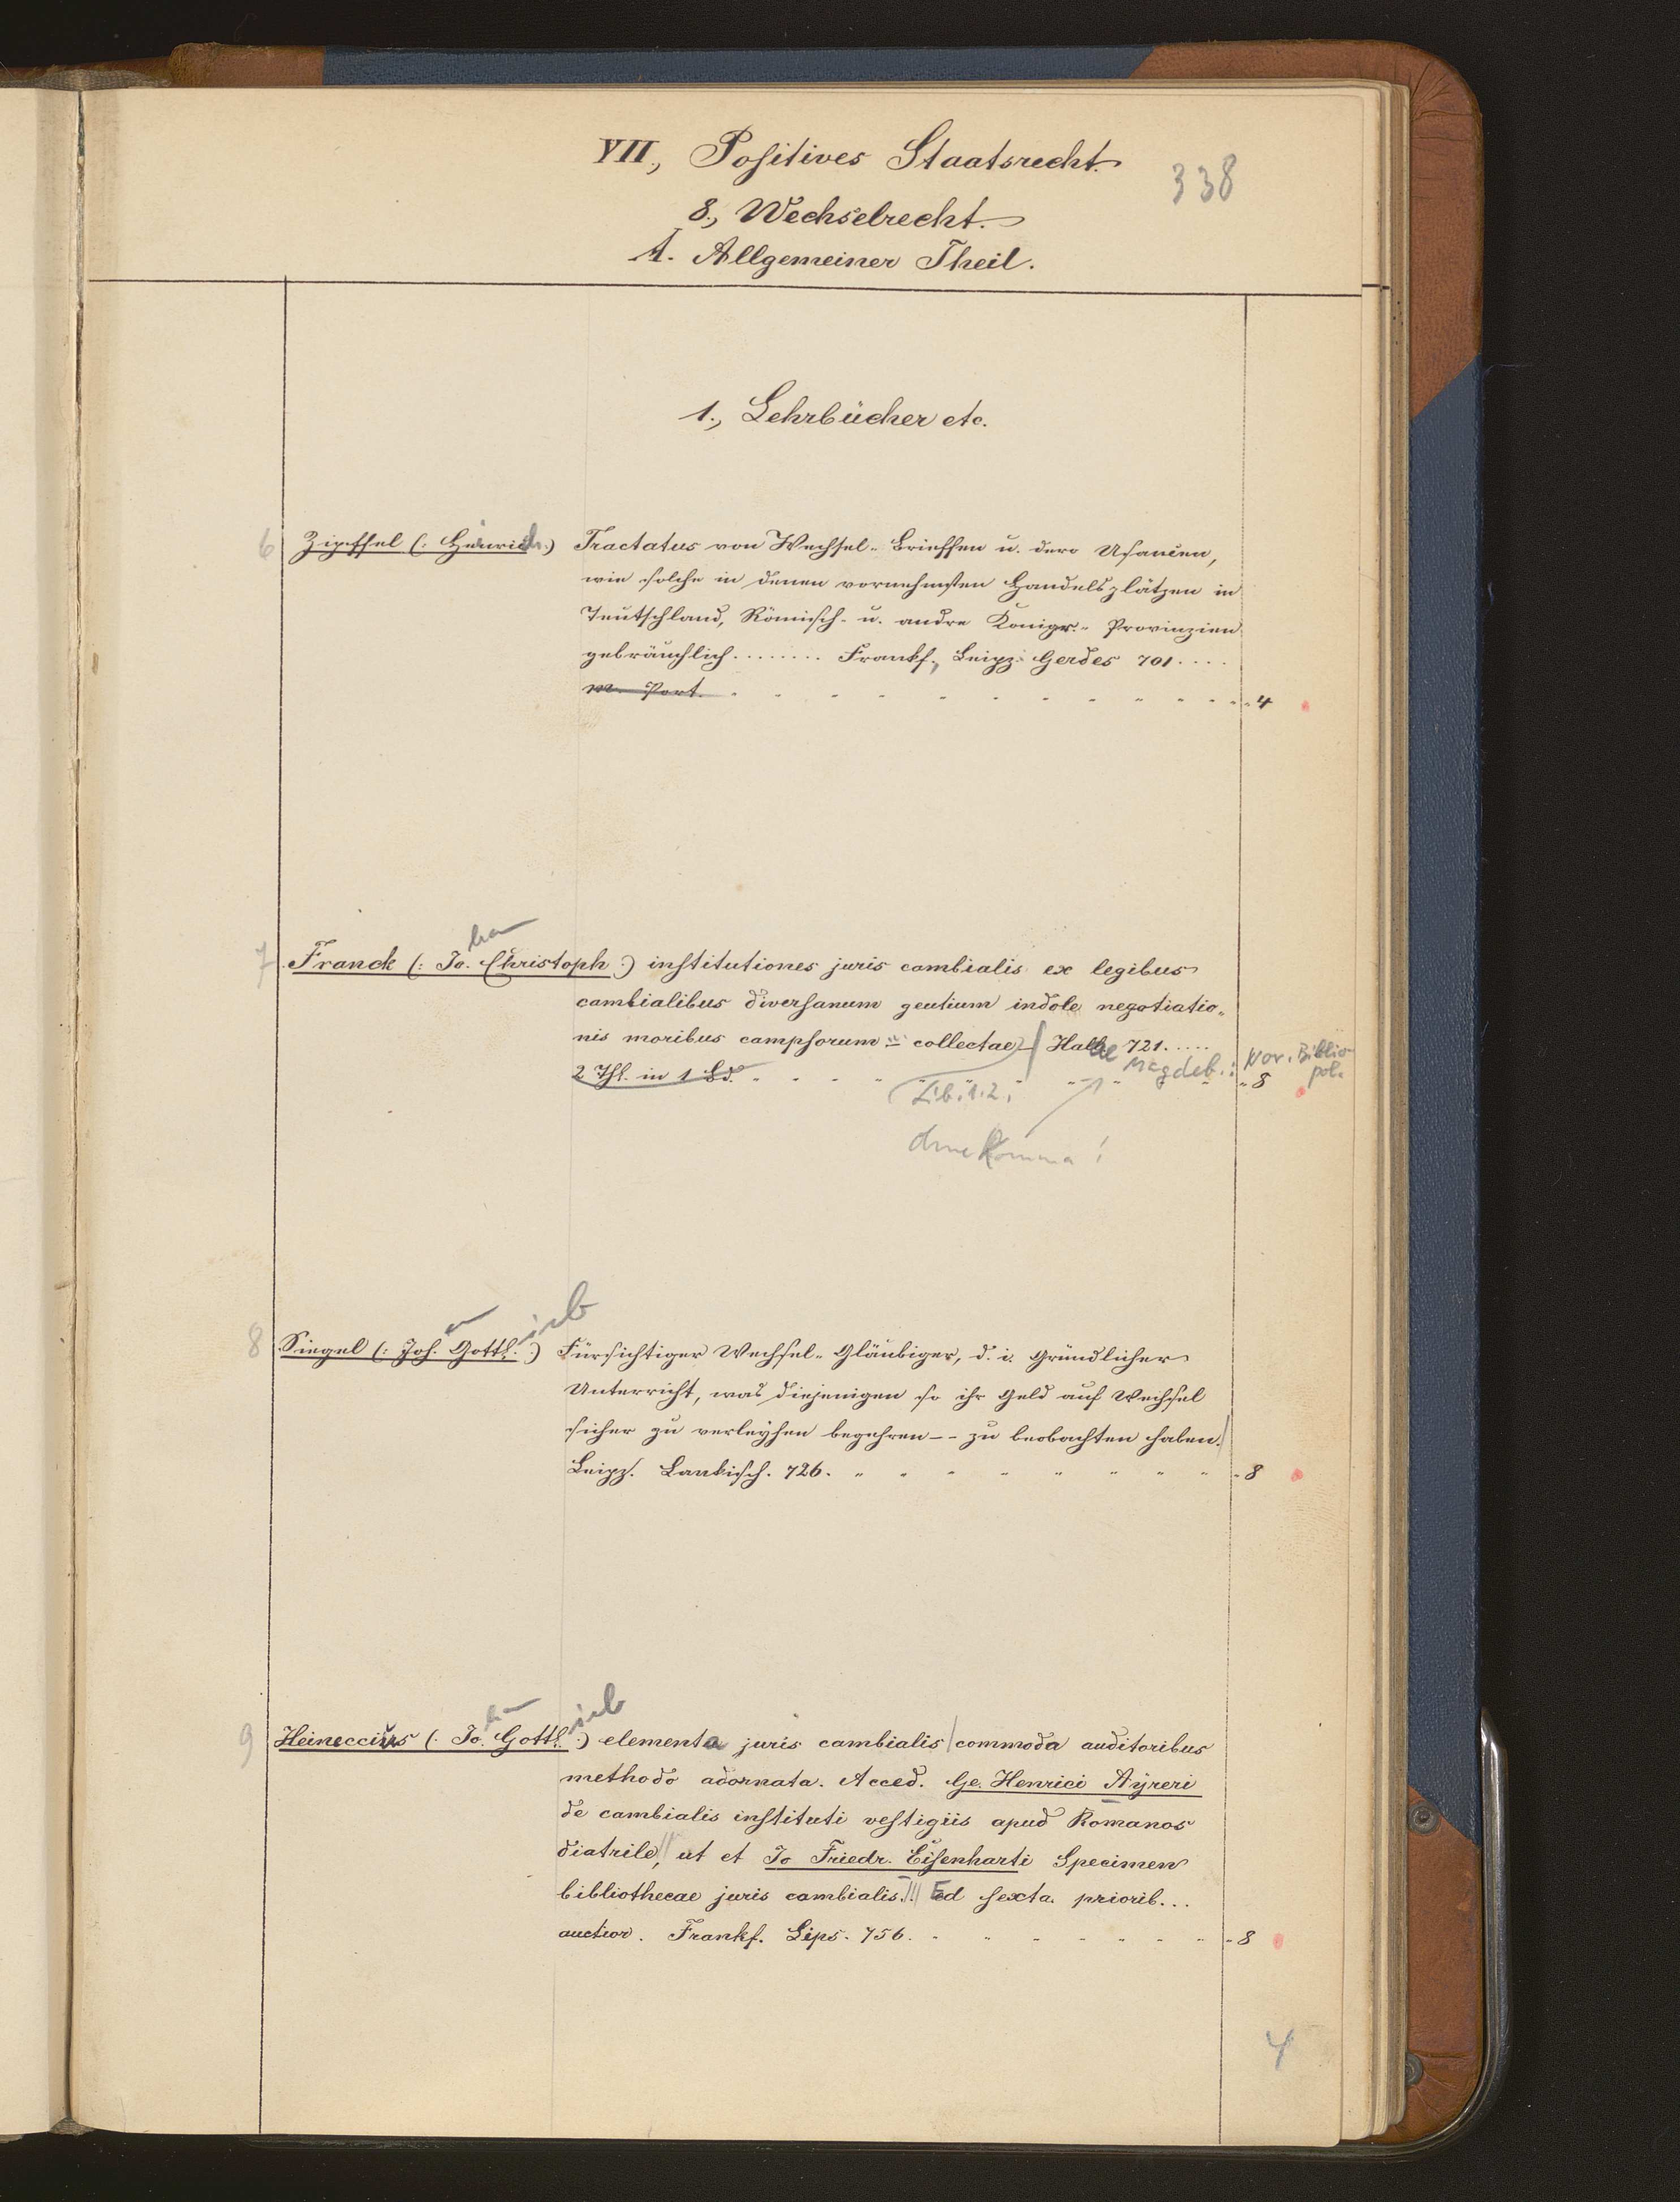 VII., Positives Staatsrecht.
338
8., Wechselrecht.
A. Allgemeiner Theil.
1., Lehrbücher etc.
6 Zipffel (: Heinrich :) Tractatus von Wechsel-Brieffen u. dero Usancen,
wie solche in denen vornehmsten Handelsplätzen in
Teutschland, Römisch- u. andre Königr.- Provinzien
gebräuchlich........ Frankf., Leipz. Gerdes 701....
m. Port. 4
7 Franck (: Jo. Christoph :) institutiones juris cambialis ex legibus
cambialibus diversanum gentium indole negotiatio-
nis moribus campsorum - collectae / Halae 721.....
Magdeb.: Nov. Bibliopol.
2 Thl. in 1 Bd. 8
Lib. 1.2.
ohne Komma!
8 Siegel (: Joh. Gottlieb :) Fürsichtiger Wechsel-Gläubiger, d. i. Gründlicher
Unterricht, was diejenigen so ihr Geld auf Wechsel
sicher zu verleyhen begehren -- zu beobachten haben. /
Leipz. Lankisch. 726. 8
9 Heineccius (: Jo. Gottlieb :) elementa juris cambialis / commoda auditoribus
methodo adornata. Acced. Ge. Henrici Ayreri
de cambialis instituti vestigiis apud Romanos
diatrile, // ut et Jo Friedr. Eisenharti Specimen
bibliothecae juris cambialis. /// Ed sexta priorib...
auctior. Frankf. Lips. 756. 8
4